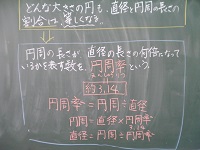 どんな大きさの円も、直径と円周の長さの
割合は、等しくなる。
円周の長さが、直径の長さの何倍になって
いるかを表す数を、円周率という。
えんしゅうりつ
約3.14
円周率=円周÷直径
円周=直径×円周率
3.14
直径=円周÷円周率